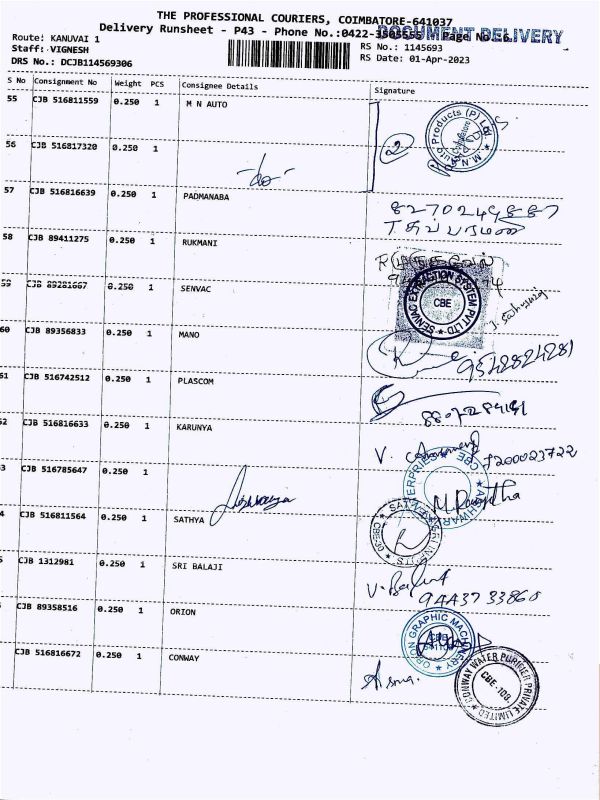 THE PROFESSIONAL COURIERS, COIMBATORE-641037
Delivery Runsheet - P43 - Phone No.:0422-3505555 Page No. 6
DOCUMENT DELIVERY
Route: KANUVAI 1
Staff: VIGNESH
DRS No.: DCJB114569306
RS No.: 1145693
RS Date: 01-Apr-2023
S No Consignment No Weight PCS Consignee Details Signature
55 CJB 516811559 0.250 1 M N AUTO
M.N. Auto Products (P) Ltd
2
56 CJB 516817320 0.250 1
-do-
57 CJB 516816639 0.250 1 PADMANABA
58 CJB 89411275 0.250 1 RUKMANI
59 CJB 89281667 0.250 1 SENVAC
SENVAC EXTRACTION SYSTEM PVT LTD
CBE
60 CJB 89356833 0.250 1 MANO
9542824281
61 CJB 516742512 0.250 1 PLASCOM
62 CJB 516816633 0.250 1 KARUNYA
V.
7200023722
3 CJB 516785647 0.250 1
4 CJB 516811564 0.250 1 SATHYA
5 CJB 1312981 0.250 1 SRI BALAJI
9443733868
CJB 89358516 0.250 1 ORION
ORION GRAPHIC MACHINERY
CJB 516816672 0.250 1 CONWAY
CONWAY WATER PURIFIER PRIVATE LIMITED
CBE-108.